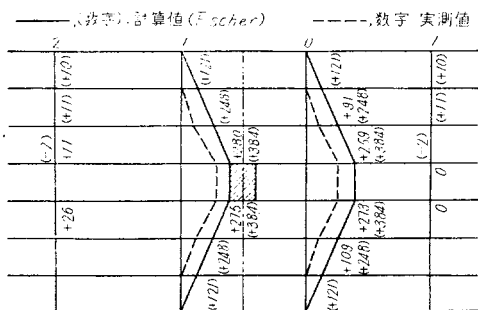 (数字) 計算値 (Fischer) 数字 実測値
2 1 0 1
(+10) (+121) (+121) (+10)
(+11) (+248) +91 (+248) (+11)
(-2) +11 +280 (+384) +259 (+384) (-2)
0
+26 +275 (+384) +273 (+384) 0
(+248) +109 (+248)
(+121) (+121)